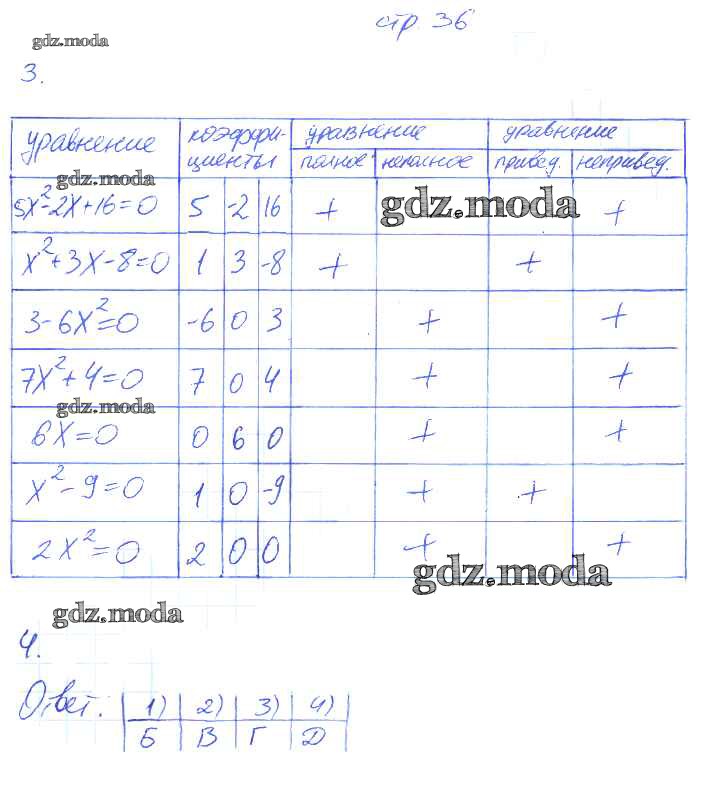 стр. 36
gdz.moda
3.
уравнение коэффи- уравнение уравнение
циенты полное неполное привед. непривед.
gdz.moda
5x²-2x+16=0 5 -2 16 + gdz.moda +
x²+3x-8=0 1 3 -8 + +
3-6x²=0 -6 0 3 + +
7x²+4=0 7 0 4 + +
gdz.moda
6x=0 0 6 0 + +
x²-9=0 1 0 -9 + +
2x²=0 2 0 0 + +
gdz.moda
gdz.moda
4.
Ответ: 1) 2) 3) 4)
Б В Г Д